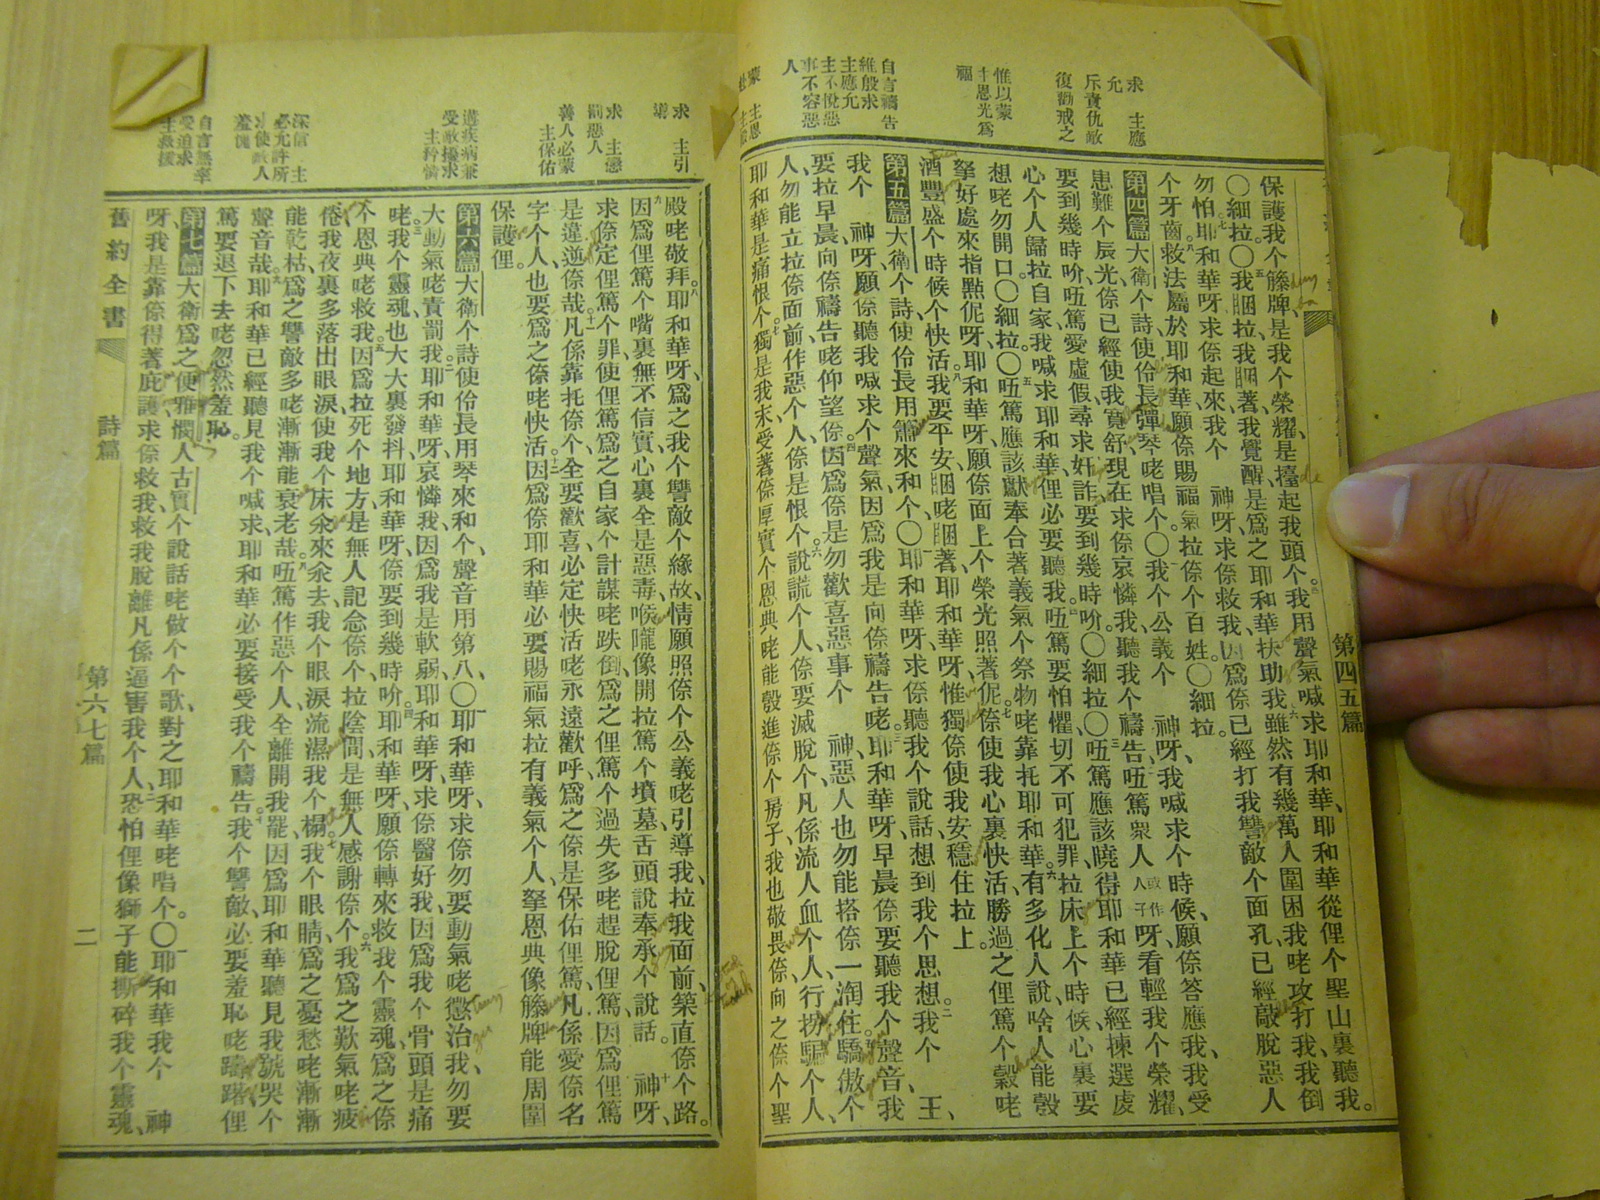 求 主應
允
斥責仇敵
復勸戒之
惟以蒙
主恩光為
福
自言禱告
維殷求
主應允
主不悅惡
事不容惡
人
第四五篇
保護我个籐牌、是我个榮耀、是擡起我頭个。我用聲氣喊求耶和華、耶和華從俚个聖山裏聽我。
〇細拉。〇我睏拉、我睏著、我覺醒、是為之耶和華扶助我。雖然有幾萬人圍困我咾攻打我、我倒
勿怕。耶和華呀、求倷起來、我个 神呀、求倷救我、因為倷已經打我讐敵个面孔、已經敲脫惡人
个牙齒。救法屬於耶和華、願倷賜福氣拉倷个百姓。〇細拉。
第四篇 大衛个詩、使伶長彈琴咾唱个。〇我个公義个 神呀、我喊求个時候、願倷答應我、我受
患難个辰光、倷已經使我寬舒、現在求倷哀憐我、聽我个禱告。㕶篤衆人 或作人子 呀、看輕我个榮耀、
要到幾時吤、㕶篤愛虛假、尋求奸詐、要到幾時吤。〇細拉。〇㕶篤應該曉得耶和華已經揀選虔
心个人歸拉自家、我喊求耶和華、俚必要聽我。㕶篤要怕懼、切不可犯罪、拉床上个時候、心裏要
想咾勿開口。〇細拉。〇㕶篤應該獻奉合著義氣个祭物咾靠托耶和華。有多化人說、啥人能彀
拏好處來指點伲呀、耶和華呀、願倷面上个榮光照著伲。倷使我心裏快活、勝過之俚篤个穀咾
酒豐盛个時候个快活。我要平安睏咾睏著、耶和華呀、惟獨倷使我安穩住拉上。
第五篇 大衛个詩、使伶長用簫來和个。〇耶和華呀、求倷聽我个說話、想到我个思想。我个 王、
我个 神呀、願倷聽我喊求个聲氣、因為我是向倷禱告咾。耶和華呀、早晨倷要聽我个聲音、我
要拉早晨向倷禱告咾仰望。倷因為倷是勿歡喜惡事个 神、惡人也勿能搭倷一淘住。驕傲个
人、勿能立拉倷面前、作惡个人、倷是恨个。說謊个人、倷要滅脫个、凡係流人血个人、行拐騙个人、
耶和華是痛恨个。獨是我末、受著倷厚實个恩典咾能彀進倷个房子、我也敬畏倷、向之倷个聖
求 主引
導
求 主懲
罰惡人
善人必蒙
主保佑
遘疾病兼
受敵擾求
主矜憐
深信 主
必允許所
求使敵人
羞愧
自言無辜
受迫求
主救援
殿咾敬拜。耶和華呀、為之我个讐敵个緣故、情願照倷个公義咾引導我、拉我面前、築直倷个路。
因為俚篤个嘴裏無不信實、心裏全是惡毒、喉嚨像開拉篤个墳墓、舌頭說奉承个說話。 神呀、
求倷定俚篤个罪、使俚篤為之自家个計謀咾跌倒、為之俚篤个過失多咾趕脫俚篤、因為俚篤
是違逆倷哉。凡係靠托倷个、全要歡喜、必定快活咾永遠歡呼、為之倷是保佑俚篤、凡係愛倷名
字个人、也要為之倷咾快活。因為倷耶和華必要賜福氣拉有義氣个人、拏恩典像籐牌能周圍
保護俚。
第六篇 大衛个詩、使伶長用琴來和个、聲音用第八。〇耶和華呀、求倷勿要動氣咾懲治我、勿要
大動氣咾責罰我。耶和華呀、哀憐我、因為我是軟弱、耶和華呀、求倷醫好我、因為我个骨頭是痛
咾。我个靈魂、也大大裏發抖、耶和華呀、倷要到幾時吤。耶和華呀、願倷轉來救我个靈魂、為之倷
个恩典咾救我。因為拉死个地方、是無人記念倷个、拉陰間是無人感謝倷个。我為之歎氣咾疲
倦、我夜裏多落出眼淚、使我个床氽來氽去、我个眼淚流濕我个榻。我个眼睛為之憂愁咾漸漸
能乾枯、為之讐敵多咾漸漸能衰老哉。㕶篤作惡个人、全離開我罷、因為耶和華聽見我號哭个
聲音哉。耶和華已經聽見我个喊求、耶和華必要接受我个禱告。我个讐敵、必要羞恥咾躊躇、俚
篤要退下去咾忽然羞恥。
第七篇 大衛為之便雅憫人古實个說話咾做个个歌、對之耶和華咾唱个。〇耶和華我个 神
呀、我是靠倷得著庇護、求倷救我、救我脫離凡係逼害我个人。恐怕俚像獅子能撕碎我个靈魂、
舊約全書 詩篇 第六七篇 二